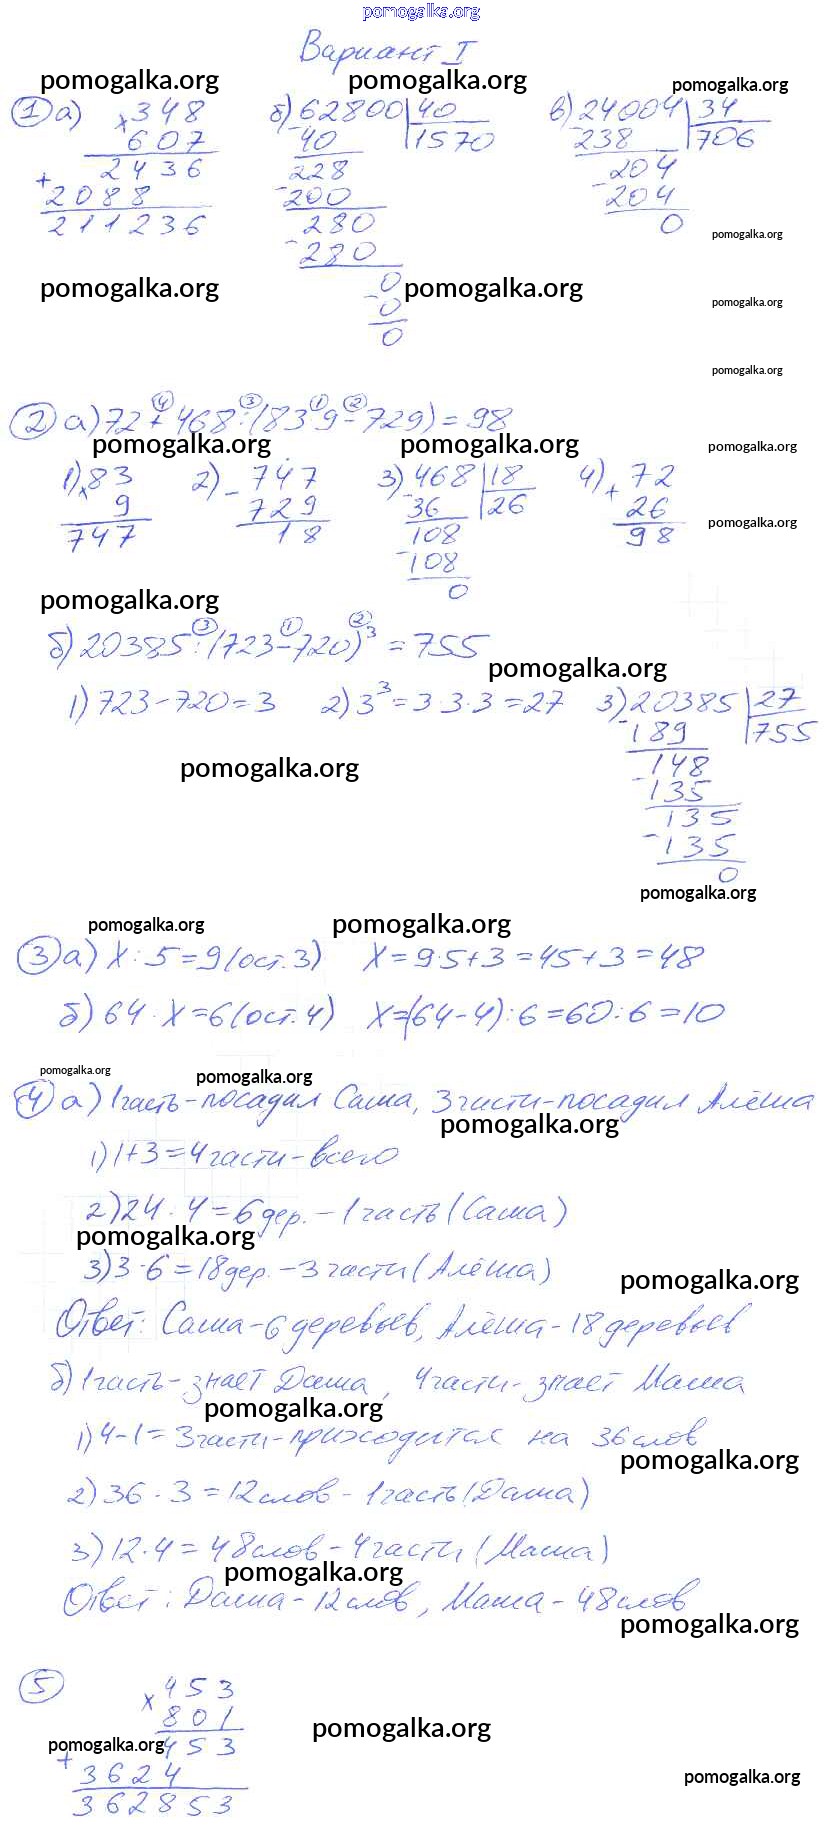 pomogalka.org
Вариант I
pomogalka.org pomogalka.org pomogalka.org
1 а) × 348 б) 62800 | 40 в) 24004 | 34
607 - 40 | 1570 - 238 | 706
2436 228 204
+ 2088 - 200 - 204
211236 280 0 pomogalka.org
- 280
pomogalka.org 0 pomogalka.org pomogalka.org
- 0
0
pomogalka.org
2 а) 72 + 468 : (83 · 9 - 729) = 98
4 3 1 2
pomogalka.org pomogalka.org pomogalka.org
1) × 83 2) - 747 3) 468 | 18 4) + 72
9 729 - 36 | 26 26
747 18 108 98 pomogalka.org
- 108
0
pomogalka.org
б) 20385 : (723 - 720)³ = 755
3 1 2
pomogalka.org
1) 723 - 720 = 3 2) 3³ = 3·3·3 = 27 3) 20385 | 27
- 189 | 755
pomogalka.org 148
- 135
135
- 135
0
pomogalka.org
pomogalka.org pomogalka.org
3 а) X : 5 = 9 (ост. 3) X = 9·5+3 = 45+3 = 48
б) 64 : X = 6 (ост. 4) X = (64-4) : 6 = 60 : 6 = 10
pomogalka.org pomogalka.org
4 а) 1 часть - посадил Саша, 3 части - посадил Алёша
pomogalka.org
1) 1+3 = 4 части - всего
2) 24 : 4 = 6 дер. - 1 часть (Саша)
pomogalka.org
3) 3·6 = 18 дер. - 3 части (Алёша)
pomogalka.org
Ответ: Саша - 6 деревьев, Алёша - 18 деревьев
б) 1 часть - знает Даша, 4 части - знает Маша
pomogalka.org
1) 4-1 = 3 части - приходится на 36 слов
pomogalka.org
2) 36 : 3 = 12 слов - 1 часть (Даша)
3) 12·4 = 48 слов - 4 части (Маша)
pomogalka.org
Ответ: Даша - 12 слов, Маша - 48 слов
pomogalka.org
5 × 453
801
pomogalka.org 453 pomogalka.org
+ 3624
362853 pomogalka.org